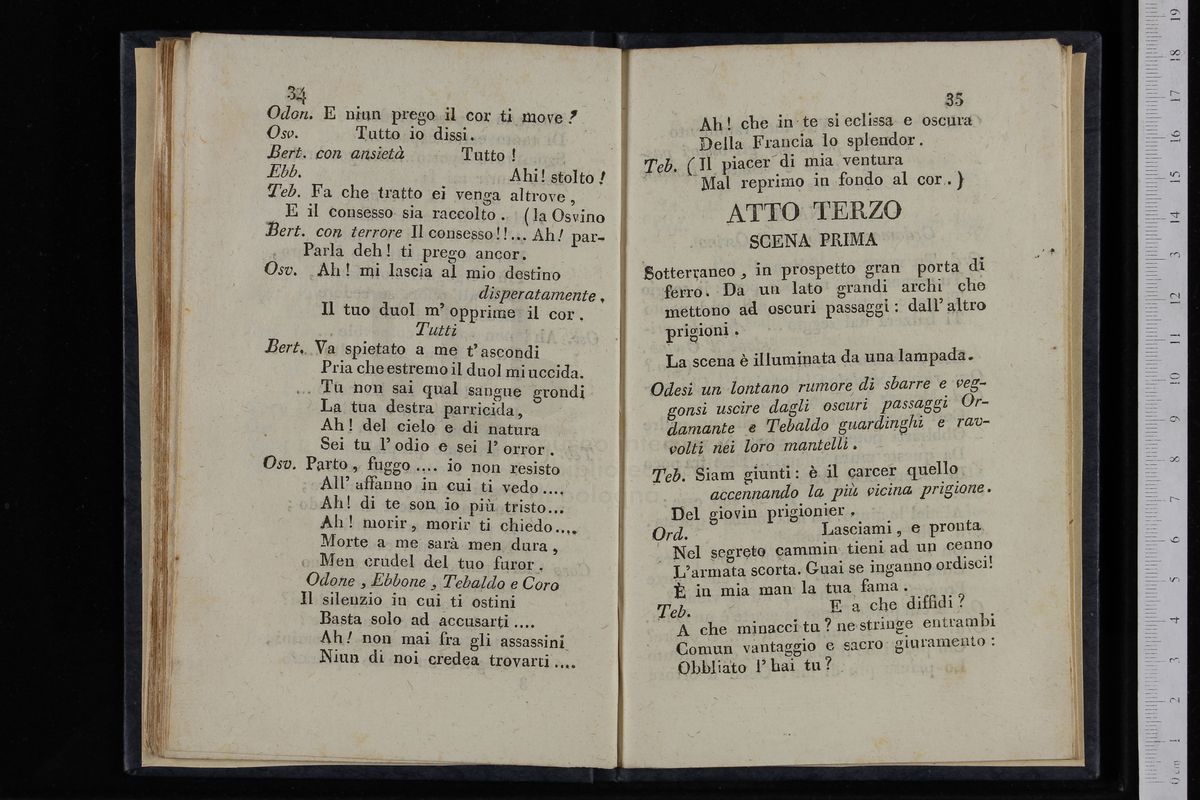 34
Odon. E niun prego il cor ti move ?
Osv. Tutto io dissi.
Bert. con ansietà Tutto !
Ebb. Ahi! stolto !
Teb. Fa che tratto ei venga altrove ,
E il consesso sia raccolto . (la Osvino
Bert. con terrore Il consesso!!... Ah! par-
Parla deh! ti prego ancor.
Osv. Ah ! mi lascia al mio destino
disperatamente .
Il tuo duol m' opprime il cor .
Tutti
Bert. Va spietato a me t' ascondi
Pria che estremo il duol mi uccida.
Tu non sai qual sangue grondi
La tua destra parricida,
Ah ! del cielo e di natura
Sei tu l' odio e sei l' orror .
Osv. Parto , fuggo .... io non resisto
All' affanno in cui ti vedo ....
Ah! di te son io più tristo...
Ah ! morir , morir ti chiedo....
Morte a me sarà men dura ,
Men crudel del tuo furor .
Odone , Ebbone , Tebaldo e Coro
Il silenzio in cui ti ostini
Basta solo ad accusarti ....
Ah! non mai fra gli assassini
Niun di noi credea trovarti ....
35
Ah! che in te si eclissa e oscura
Della Francia lo splendor .
Teb. ( Il piacer di mia ventura
Mal reprimo in fondo al cor . )
ATTO TERZO
SCENA PRIMA
Sotterraneo , in prospetto gran porta di
ferro. Da un lato grandi archi che
mettono ad oscuri passaggi : dall' altro
prigioni .
La scena è illuminata da una lampada.
Odesi un lontano rumore di sbarre e veg-
gonsi uscire dagli oscuri passaggi Or-
damante e Tebaldo guardinghi e rav-
volti nei loro mantelli .
Teb. Siam giunti : è il carcer quello
accennando la più vicina prigione.
Del giovin prigionier .
Ord. Lasciami , e pronta
Nel segreto cammin tieni ad un cenno
L'armata scorta. Guai se inganno ordisci!
È in mia man la tua fama .
Teb. E a che diffidi ?
A che minacci tu ? ne stringe entrambi
Comun vantaggio e sacro giuramento :
Obbliato l' hai tu ?